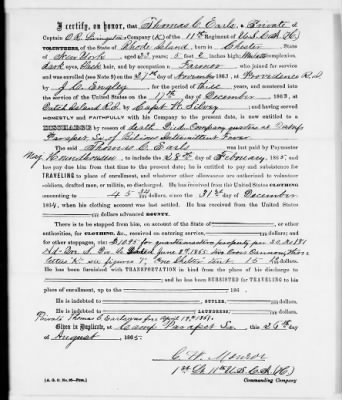 I certify, on honor, that Thomas C. Earls a Private of
Captain O.R. Livingston Company (K) of the 11th Regiment of U.S.C.A. (H)
VOLUNTEERS, of the State of Rhode Island, born in Chester, State
of New York, aged 23 years; 5 feet 2 inches high; complexion,
dark eyes, hair, and by occupation a Farmer, who joined for service
and was enrolled (see Note 8) on the 27th day of November 1863, at Providence R.I.
by J.C. Engley, for the period of years, and mustered
into the service of the United States on the 17th day of December, 1863, at
Dutch Island R.I. by Capt. W. Silvey; and having served
HONESTLY and FAITHFULLY with his Company to the present date, is now entitled to a
DISCHARGE by reason of death. Died Company quarters at Camp
Parapet La. of Bilious Intermittent Fever
The said Thomas C. Earls was last paid by Paymaster
Maj. to include the 28th day of February, 1865; and
has pay due him from that time to the present date; he is entitled to pay and subsistence for
TRAVELING to place of enrollment, and whatever other allowances are authorized to volunteer
soldiers, drafted men, or militia, so discharged. He has received from the United States CLOTHING
amounting to 45 dollars, since the 31st day of December
1864, when his clothing account was last settled. He has received from the United States
dollars advanced BOUNTY.
There is to be stopped from him, on account of the State of , or other
authorities, for CLOTHING, &c., received on entering service, dollars; and
for other stoppages, viz:
June 2d 1865
dollars.
He has been furnished with TRANSPORTATION in kind from the place of his discharge to
; and he has been SUBSISTED for TRAVELING to his
place of enrollment, up to the 186 .
He is indebted to , SUTLER, dollars.
He is indebted to , LAUNDRESS, dollars.
Private Thomas C. Earls April 19th 1864.
Given in Duplicate, at Camp Parapet La. this 26th day
of August, 1865.
C. W. Monroe
1st Lt. 11th U.S.C.A. (H)
Commanding Company